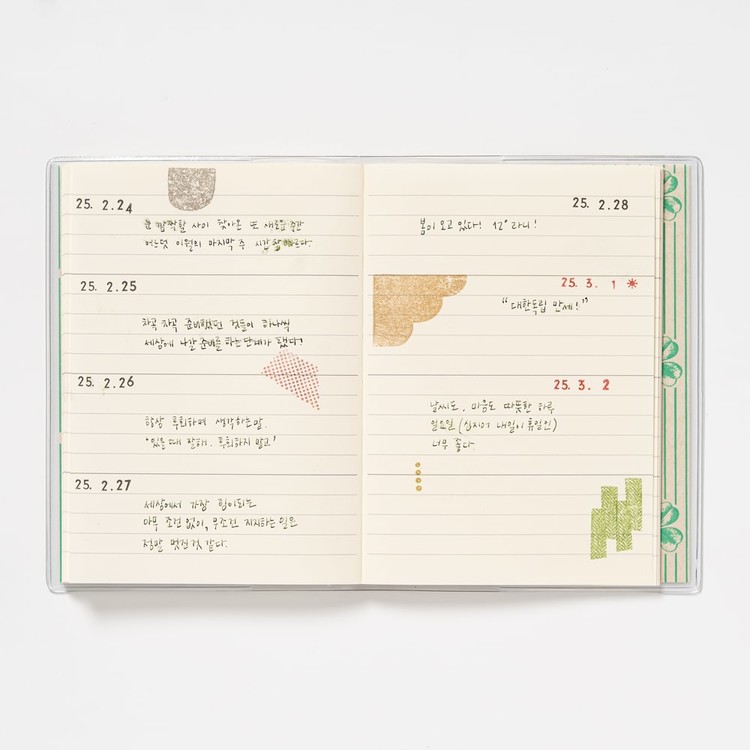 25. 2.24
눈 깜짝할 사이 찾아온 또 새로운 주간
어느덧 이월의 마지막 주 시간 참 빠르다.
25. 2.25
차곡차곡 준비했던 것들이 하나씩
세상에 나갈 준비를 하는 단계가 됐다!
25. 2.26
항상 후회하며 생각하는 말.
"있을 때 잘해. 후회하지 말고"
25. 2.27
세상에서 가장 힘이 되는
아무 조건 없이, 무조건 지지하는 일은
정말 멋진 것 같다.
25. 2.28
봄이 오고 있다! 12° 라니!
25. 3. 1
"대한독립 만세!"
25. 3. 2
날씨도, 마음도 따뜻한 하루
일요일 (심지어 내일이 휴일인)
너무 좋다.